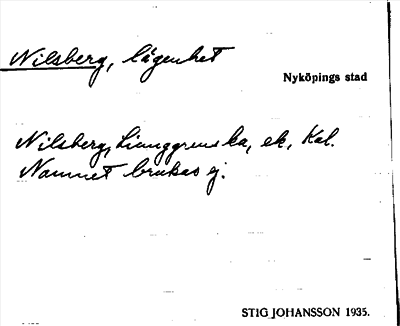 Nilsberg, lägenhet
Nyköpings stad
Nilsberg, Liunggrenska, ek, Kal.
Namnet brukas ej.
STIG JOHANSSON 1935.